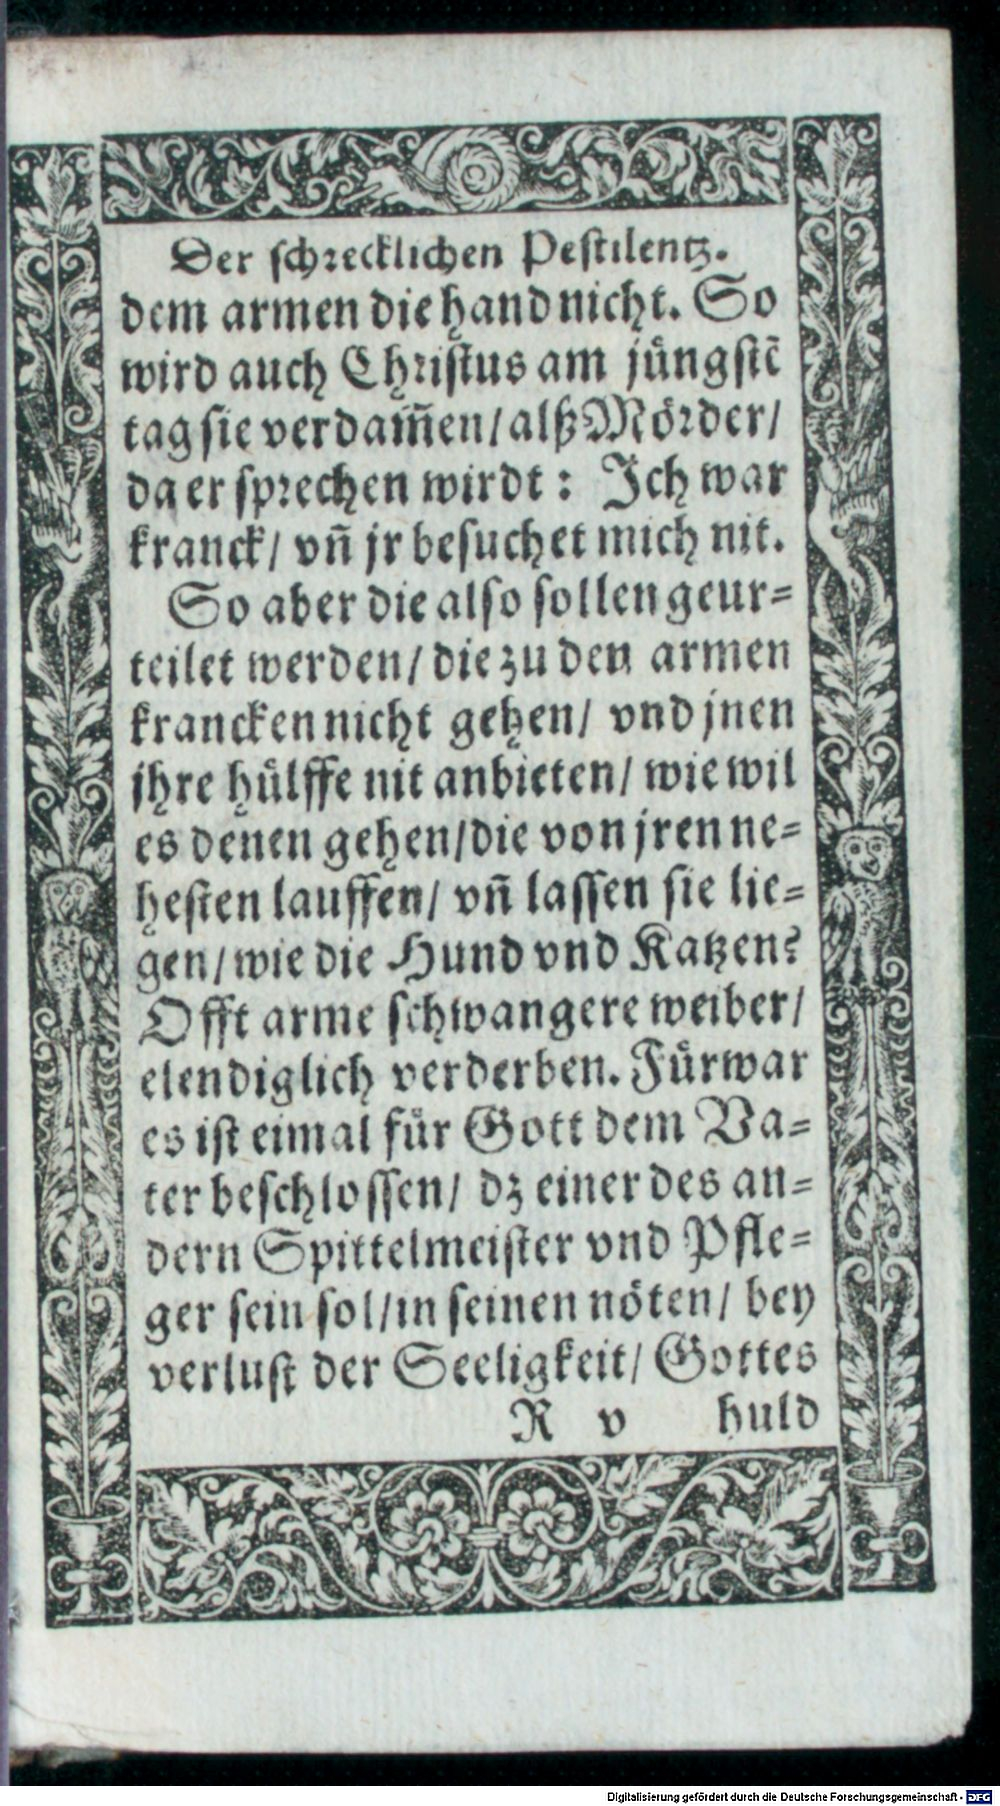 Der schrecklichen Pestilentz.
dem armen die hand nicht. So
wird auch Christus am jüngstē
tag sie verdam̃en/ alß Mörder/
da er sprechen wirdt: Ich war
kranck/ vñ jr besuchet mich nit.
So aber die also sollen geur-
teilet werden/ die zu den armen
krancken nicht gehen/ vnd jnen
jhre hülffe nit anbieten/ wie wil
es denen gehen/ die von jren ne-
hesten lauffen/ vñ lassen sie lie-
gen/ wie die Hund vnd Katzen?
Offt arme schwangere weiber/
elendiglich verderben. Fürwar
es ist eimal für Gott dem Va-
ter beschlossen/ dz einer des an-
dern Spittelmeister vnd Pfle-
ger sein sol/ in seinen nöten/ bey
verlust der Seeligkeit/ Gottes
R v huld
Digitalisierung gefördert durch die Deutsche Forschungsgemeinschaft - DFG